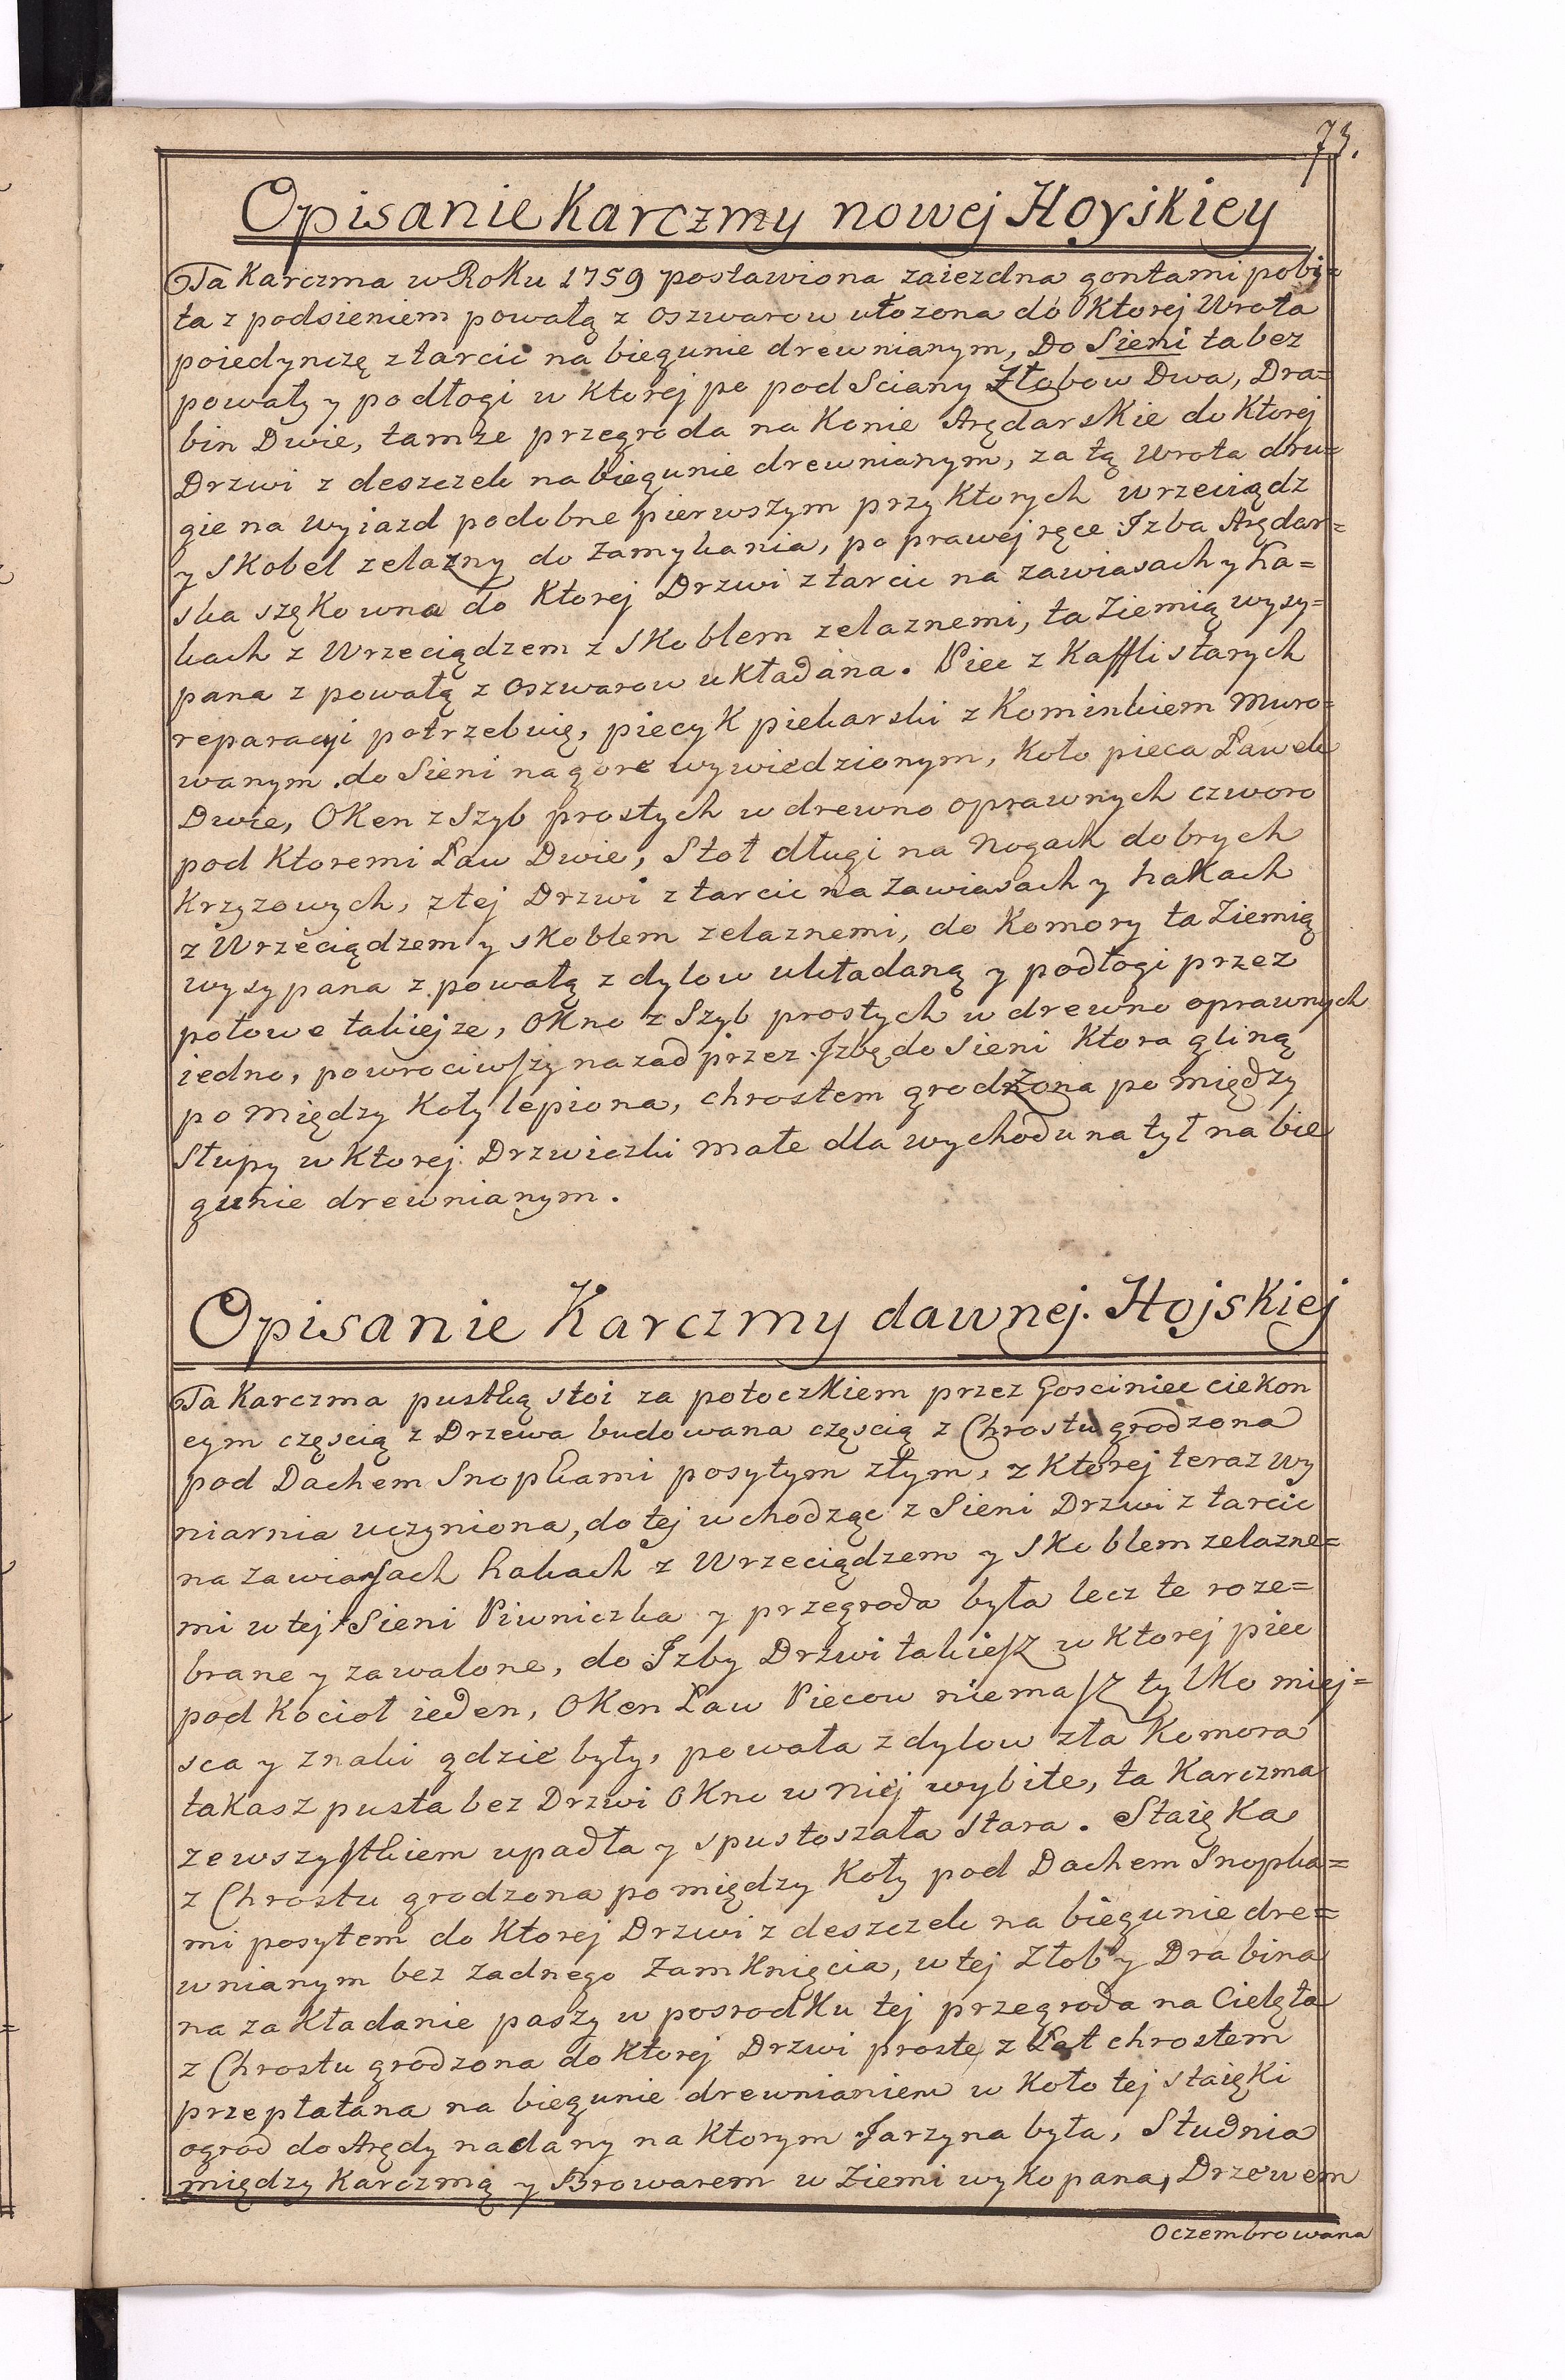 73.
Opisanie Karczmy nowej Hoyskiey
Ta Karczma w Roku 1759 postawiona zaiezdna gontami pobi=
ta z podsieniem powałą z oszwarow ułozona do Ktorej Wrota
poiedynczę z tarcic na biegunie drewnianym, Do Sieni ta bez
powały y podłogi w Ktorej po pod Sciany Złobow Dwa, Dra=
bin Dwie, tamze przegroda na Konie Arędarskie do Ktorej
Drzwi z deszczek na biegunie drewnianym, za tą Wrota dru=
gie na wyiazd podobne pierwszym przy Ktorych wrzeciądz
y Skobel zelazny do Zamykania, po prawej ręce Izba Arędar=
ska szękowna do Ktorej Drzwi z tarcic na zawiasach y ha=
kach z Wrzeciądzem z Skoblem zelaznemi, ta Ziemią wysy=
pana z powałą z oszwarow układana. Piec z Kaffli starych
reparacyi potrzebuię, piecyk piekarski z Kominkiem Muro=
wanym do Sieni na gore wywiedzionym, Koło pieca Ławek
Dwie, Oken z Szyb prostych w drewno oprawnych czworo
pod Ktoremi Ław Dwie, Stoł długi na Nogach dobrych
Krzyzowych, z tej Drzwi z tarcic na Zawiasach y hakach
z Wrzeciądzem y skoblem zelaznemi, do Komory ta Ziemią
wysypana z powałą z dylow układaną y podłogi przez
połowe takiejze, Okno z Szyb prostych w drewno oprawnych
iedno, powrociwszy nazad przez Izbę do Sieni Ktora gliną
pomiędzy Koły lepiona, chrostem grodzona pomiędzy
Słupy w Ktorej Drzwiczki małe dla wychodu na tył na bie
gunie drewnianym.
Opisanie Karczmy dawnej Hojskiej
Ta Karczma pustką stoi za potoczkiem przez Gosciniec ciekon
cym częscią z Drzewa budowana częscią z Chrostu grodzona
pod Dachem Snopkami poszytym złym, z Ktorej teraz Wy
niarnia uczyniona, do tej wchodząc z Sieni Drzwi z tarcic
na zawiasach hakach z Wrzeciądzem y Skoblem zelazne=
mi w tej Sieni Piwniczka y przegroda była lecz te roze=
brane y zawalone, do Izby Drzwi takiesz w Ktorej piec
pod Kocioł ieden, Oken Ław Piecow niemasz tylko miej=
sca y znaki gdzie były, powała z dylow zła Komora
takasz pusta bez Drzwi Okno w niej wybite, ta Karczma
zewszystkiem upadła y spustoszała stara. Staięka
z Chrostu grodzona pomiędzy Koły pod Dachem Snopka=
mi posytem do Ktorej Drzwi z deszczek na biegunie dre=
wnianym bez zadnego Zamknięcia, w tej Złob y Drabina
na zakładanie paszy w posrodku tej przegroda na Cielęta
z Chrostu grodzona do Ktorej Drzwi proste z Łat chrostem
przeplatana na biegunie drewnianiem w Koło tej staięki
ogrod do Arędy nadany na Ktorym Jarzyna była, Studnia
między Karczmą y Browarem w Ziemi wykopana, Drzewem
Oczembrowana